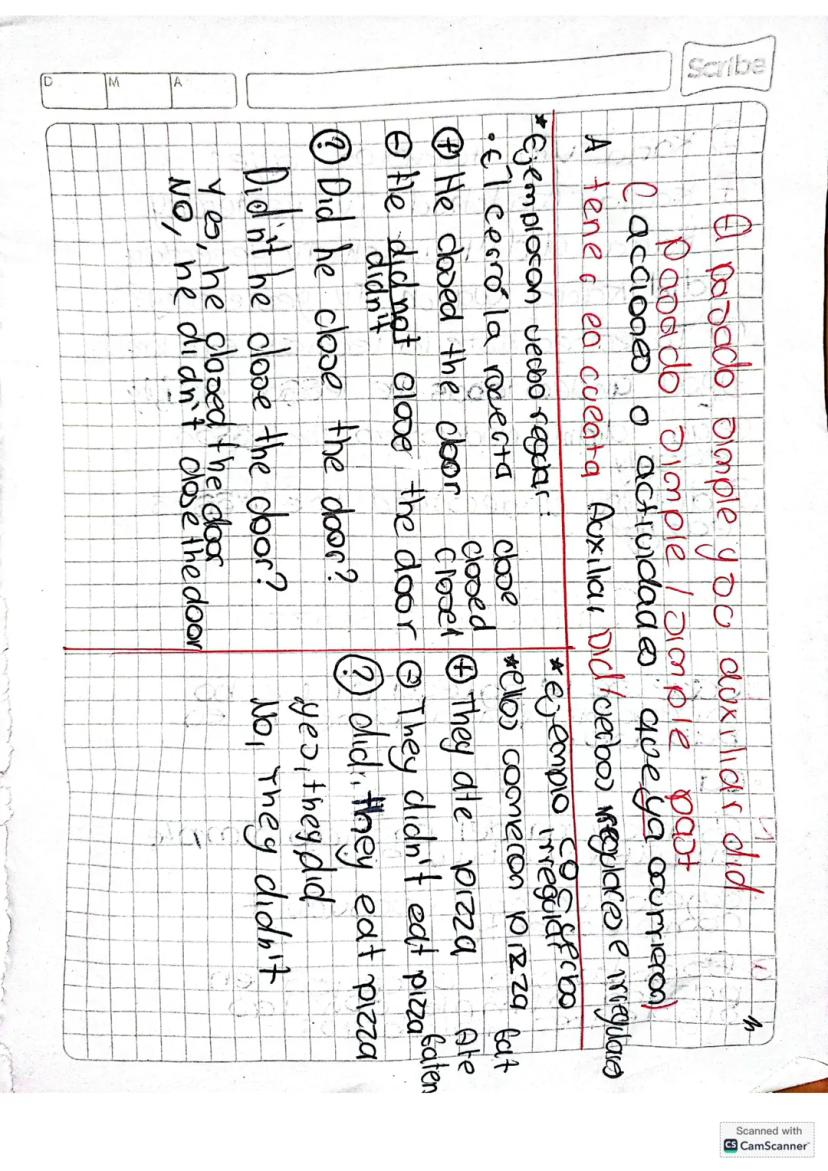 Scribe
D M A
El pasado simple y su auxiliar did
Pasado simple / simple past
(acciones o actividades que ya ocurrieron)
A tener en cuenta Auxiliar Did/verbos regulares e irregulares
*Ejemplo con verbo regular:
• Él cerró la puerta close
⊕ He closed the door closed
closet
⊖ He did not close the door
didn't
? Did he close the door?
Didn't he close the door?
Yes, he closed the door
No, he didn't close the door
*Ejemplo con verbo
irregular
*ellos comieron pizza Eat
⊕ They ate pizza Ate
Eaten
⊖ They didn't eat pizza
? did they eat pizza
yes, they did
No, They didn't
Scanned with
CS CamScanner